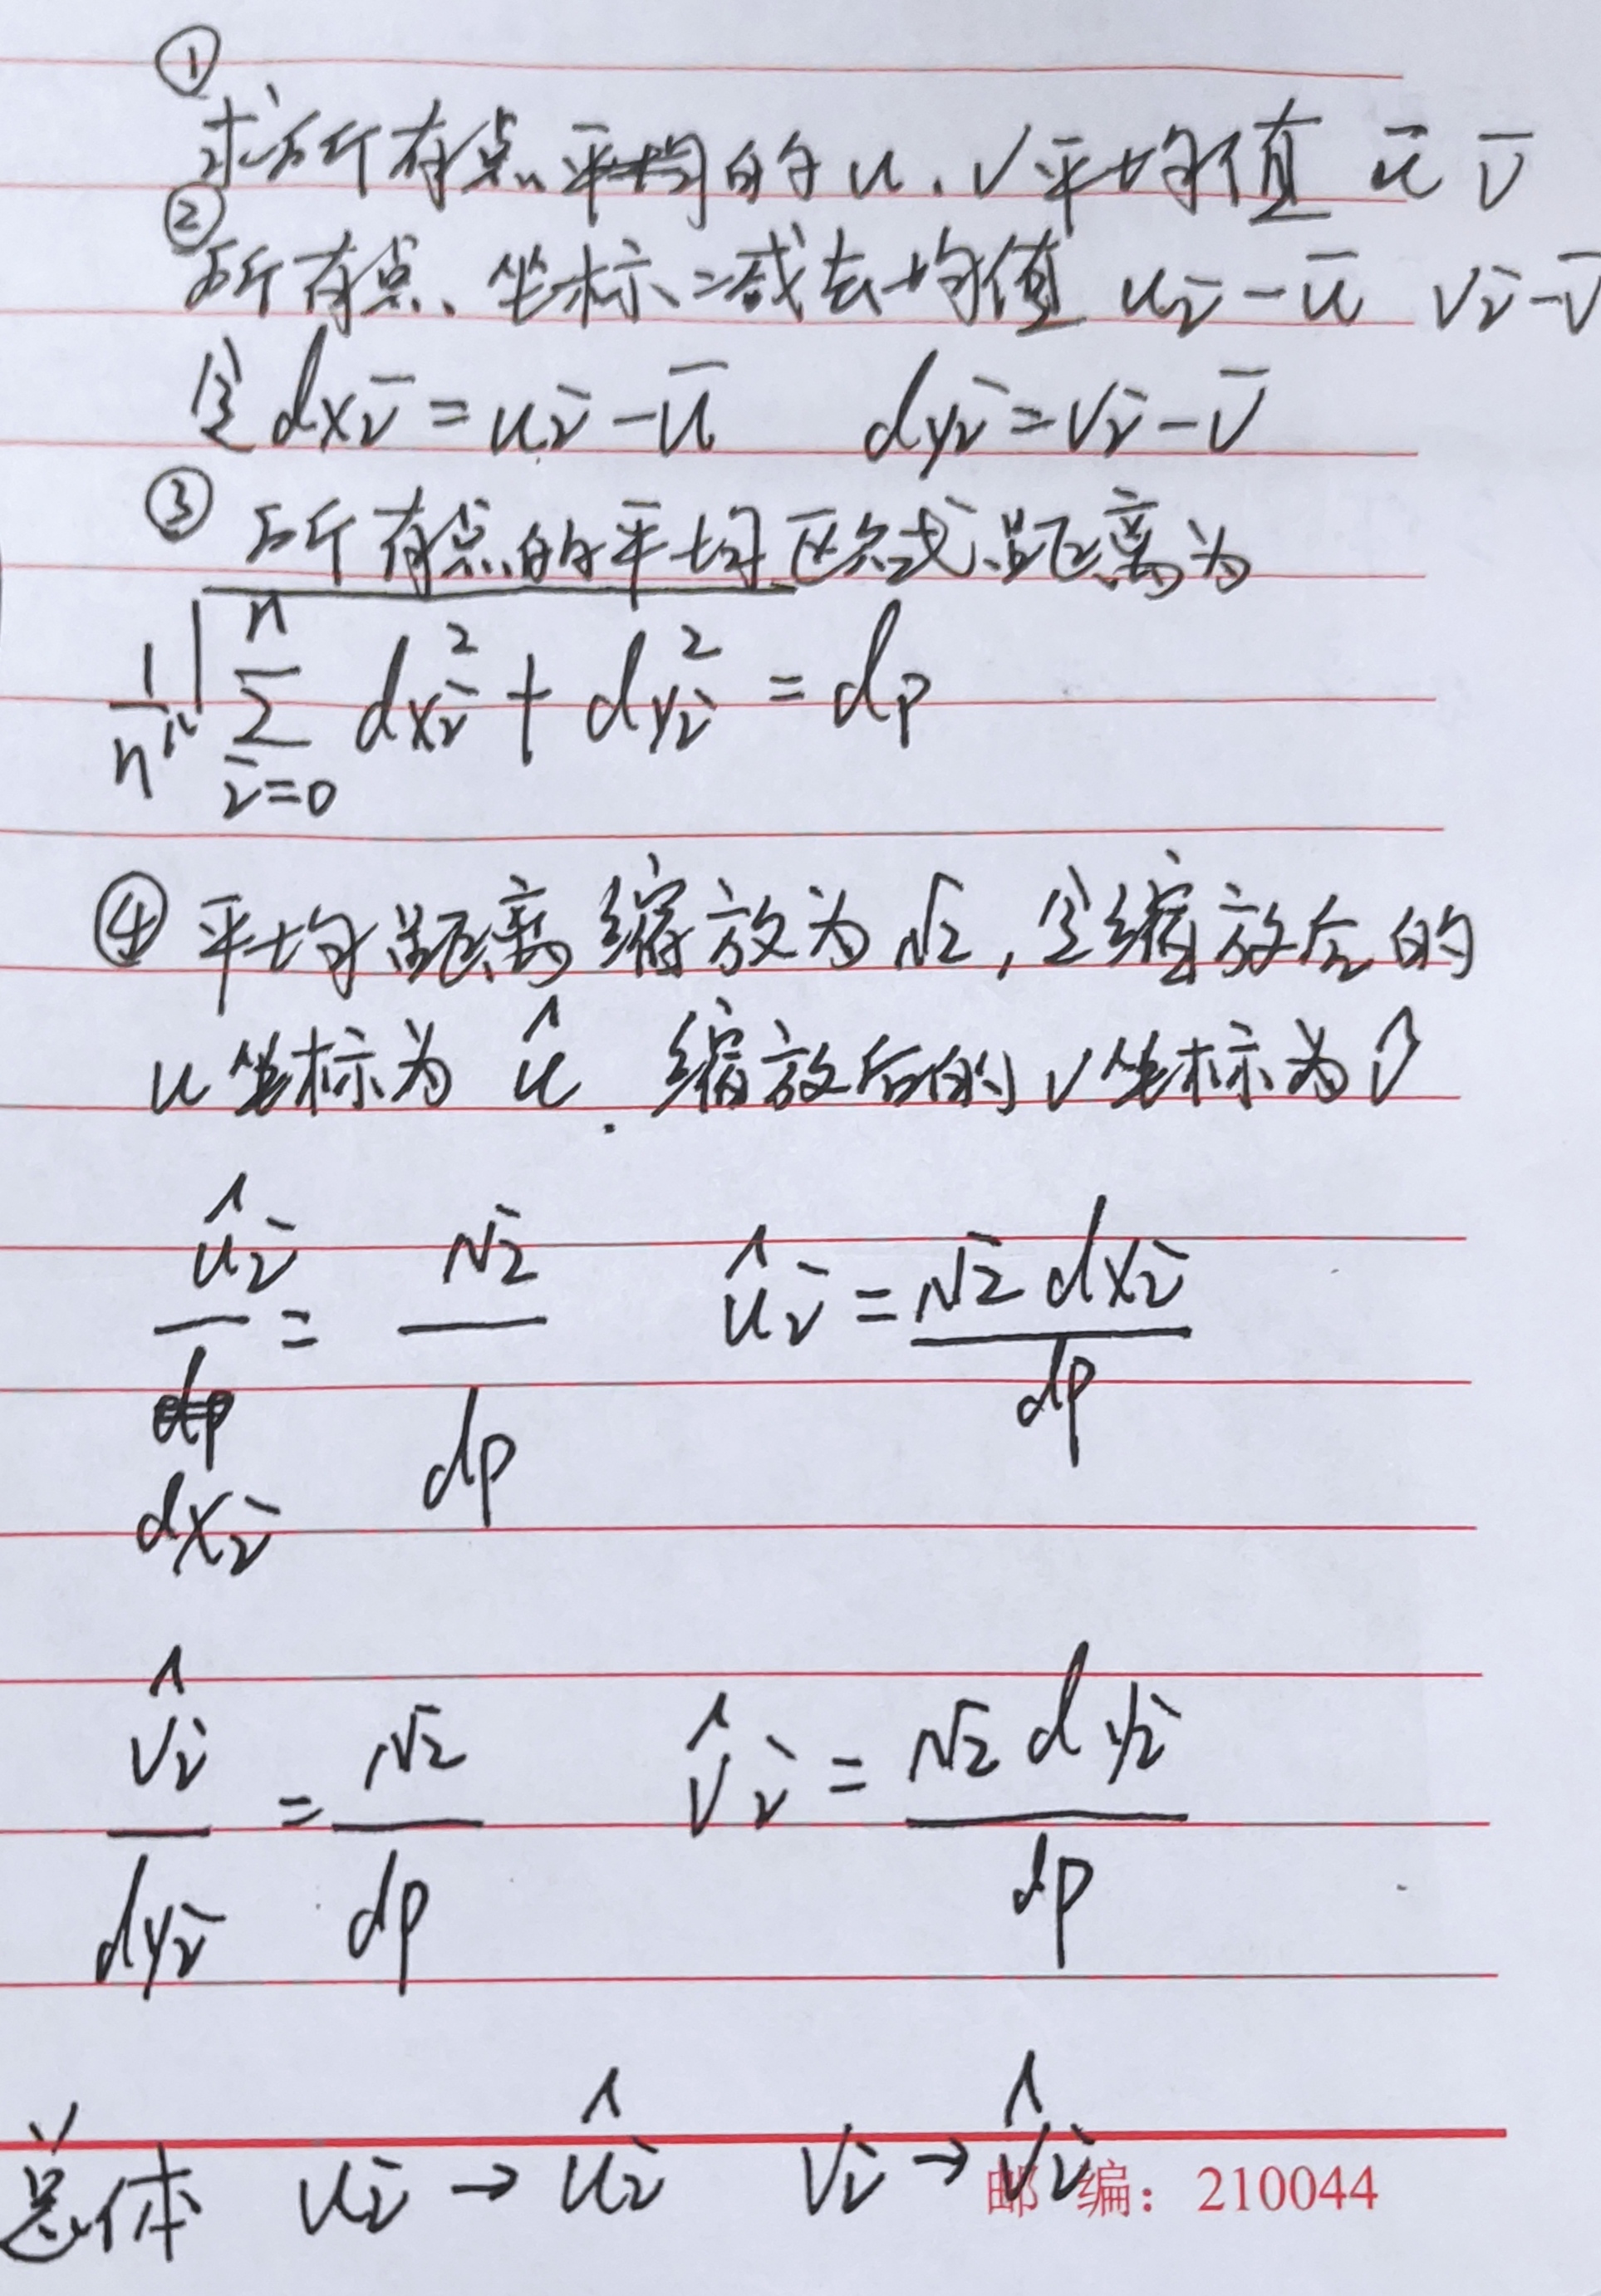 ①
求所有点平均的u.v平均值 ū v̄
②
所有点坐标减去均值 uᵢ-ū vᵢ-v̄
令dxᵢ=uᵢ-ū dyᵢ=vᵢ-v̄
③ 所有点的平均欧式距离为
1/n √(∑ⁿᵢ₌₀ dxᵢ²+dyᵢ²) = dp
④平均距离缩放为√2,令缩放后的
u坐标为 û.缩放后的v坐标为v̂
ûᵢ/dxᵢ = √2/dp ûᵢ=√2dxᵢ/dp
v̂ᵢ/dyᵢ = √2/dp v̂ᵢ=√2dyᵢ/dp
总体 uᵢ→ûᵢ vᵢ→v̂ᵢ
邮编:210044